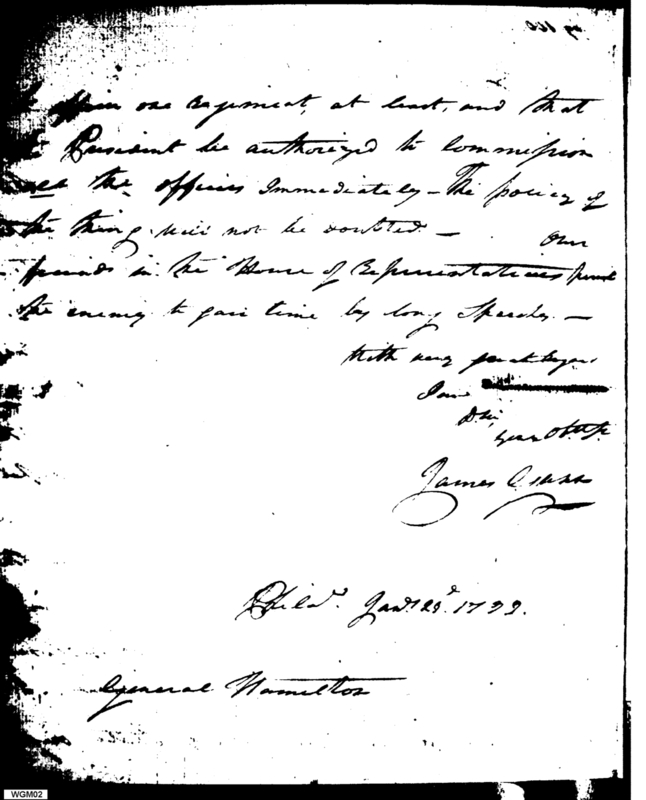 one Regiment, at least, and that
President be authorized to Commission
all the officers Immediately — The policy of
the thing will not be doubted — Our
friends in the House of Representatives permit
the enemy to gain time by long Speeches. —
With very great
I am
D Sir,
your Obt
James Gunn
Philad. Jany 23d. 1799.
General Hamilton
WGM02